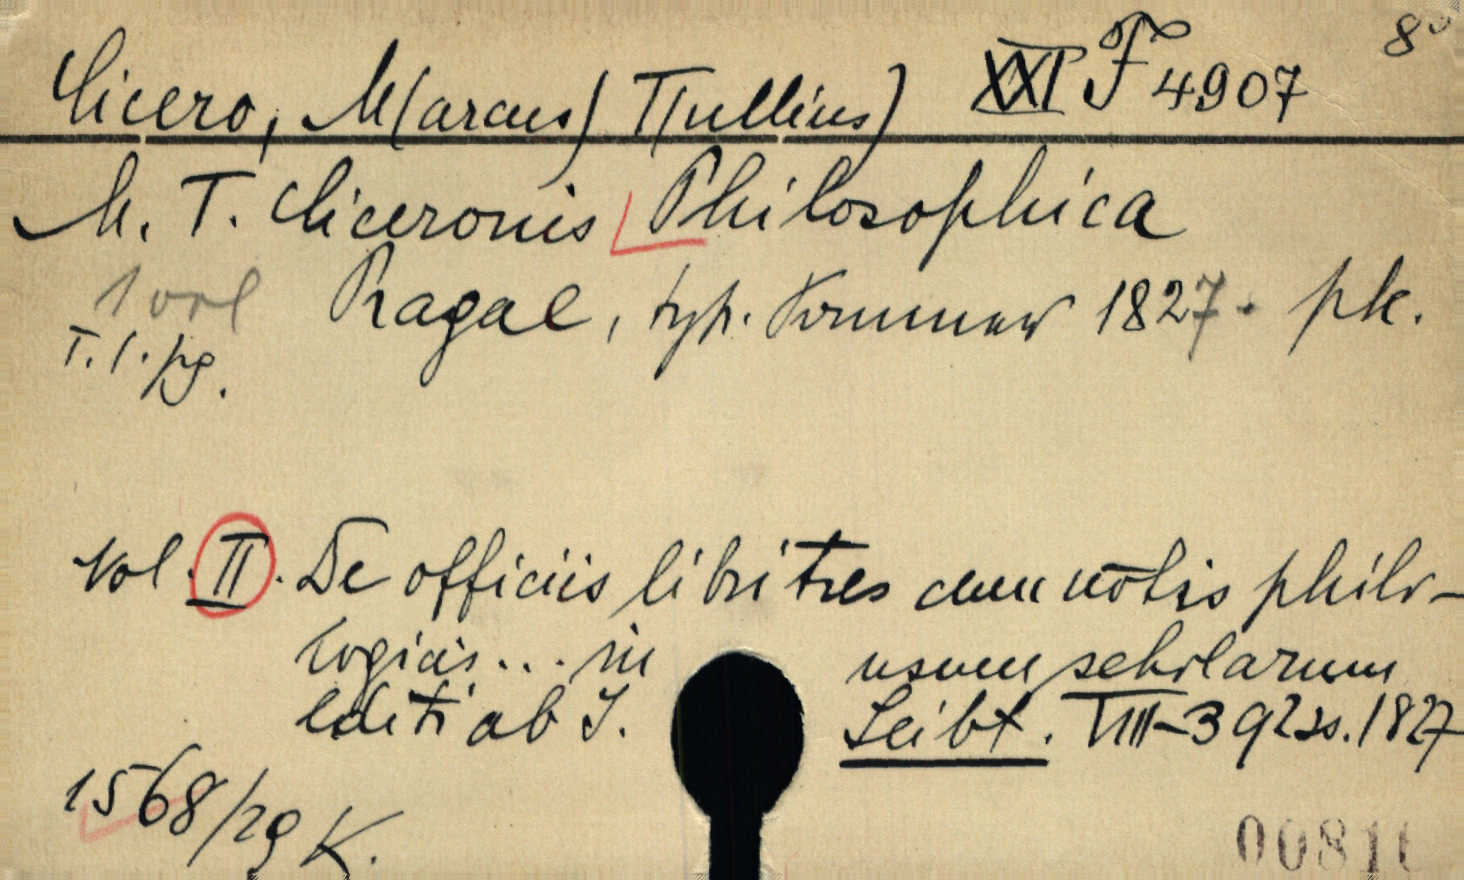 Cicero, M(arcus) T(ullius) XXI F 4907 8°
M. T. Ciceronis Philosophica
1 vol Pragae, typ. 1827. pk.
T. I. pg.
Vol. II. De officiis libri tres cum notis philo-
logicis... in usum scholarum
editi ab J. Seibt. VIII-392 ss. 1827
1568/29 K.